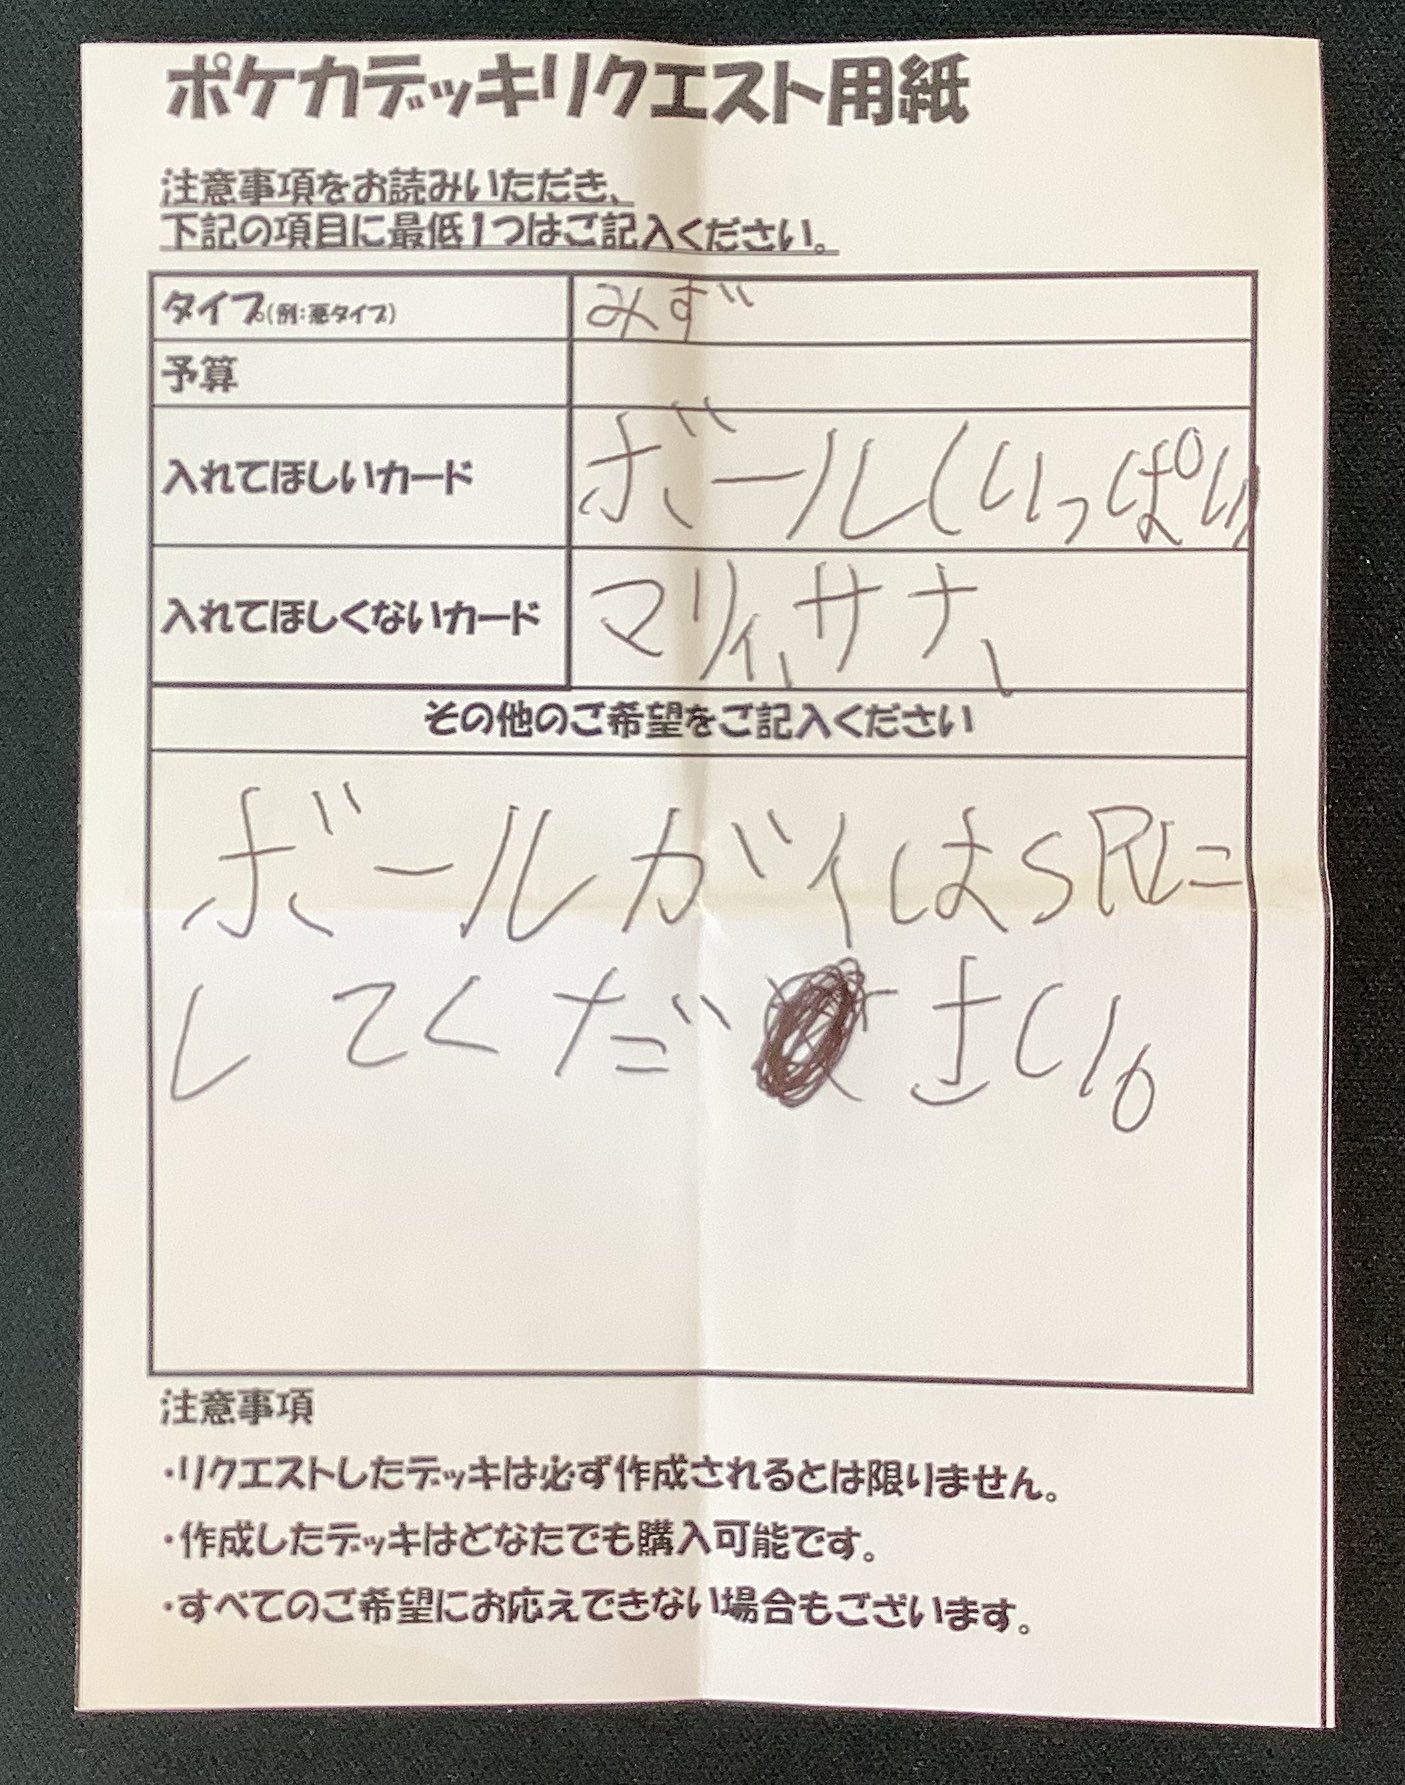 ポケカデッキリクエスト用紙
注意事項をお読みいただき、
下記の項目に最低1つはご記入ください。
タイプ(例:悪タイプ) みず
予算
入れてほしいカード ボール(いっぱい)
入れてほしくないカード マリィ、サナ、
その他のご希望をご記入ください
ボールガイはSRに
してください。
注意事項
・リクエストしたデッキは必ず作成されるとは限りません。
・作成したデッキはどなたでも購入可能です。
・すべてのご希望にお応えできない場合もございます。